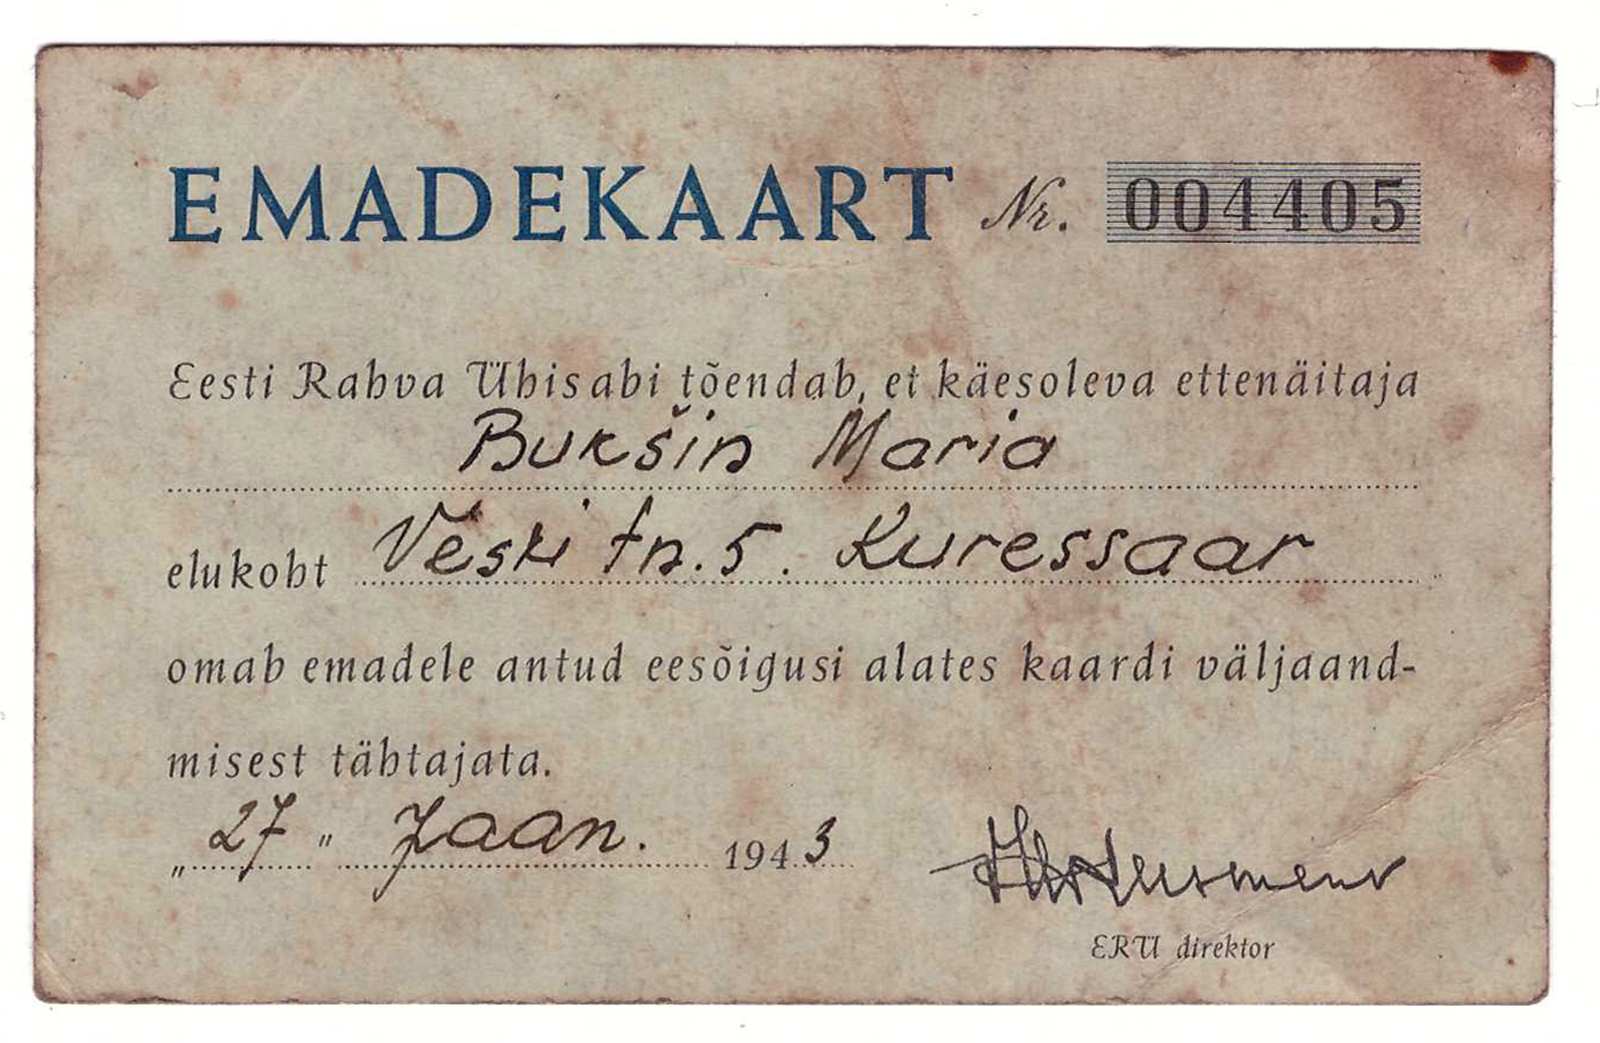 EMADEKAART Nr. 004405
Eesti Rahva Ühisabi tõendab, et käesoleva ettenäitaja
Bukšin Maria
elukoht Veski tn. 5. Kuressaar
omab emadele antud eesõigusi alates kaardi väljaand-
misest tähtajata.
„27" Jaan. 1943
ERÜ direktor